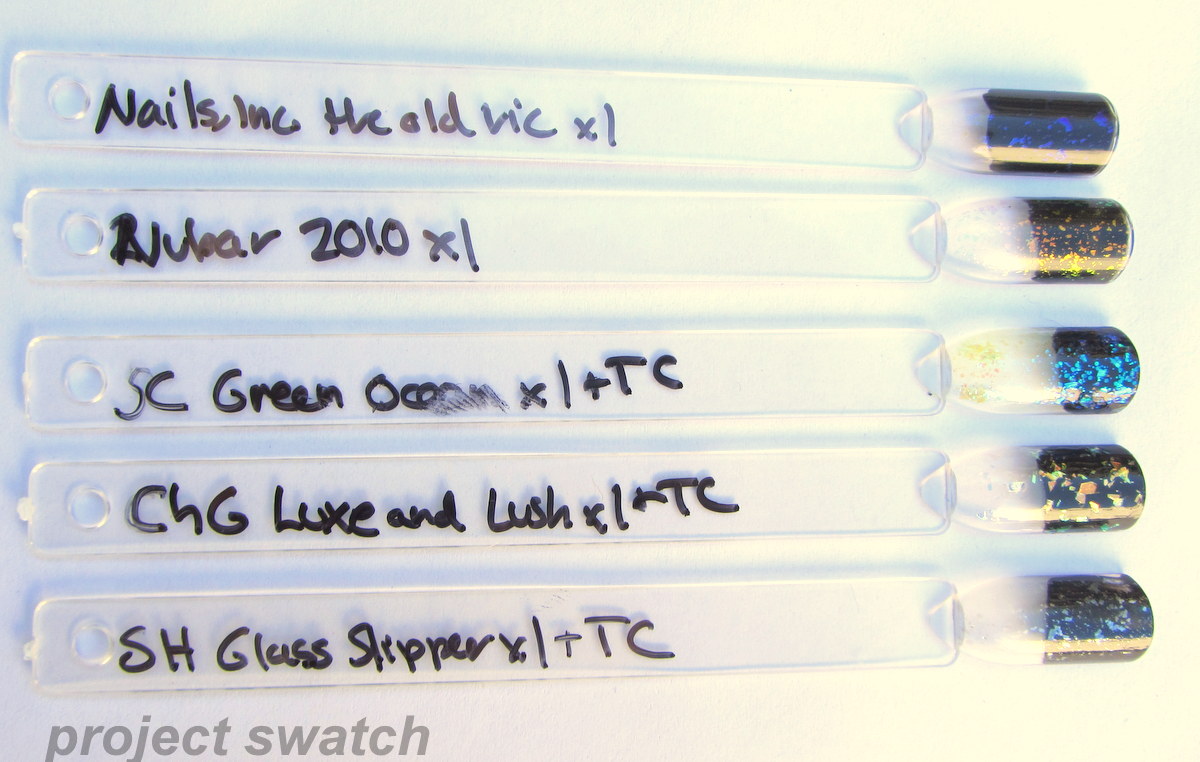 Nails Inc the old vic x1
Nubar 2010 x1
SC Green Ocean x1 + TC
ChG Luxe and Lush x1 + TC
SH Glass Slipper x1 + TC
project swatch